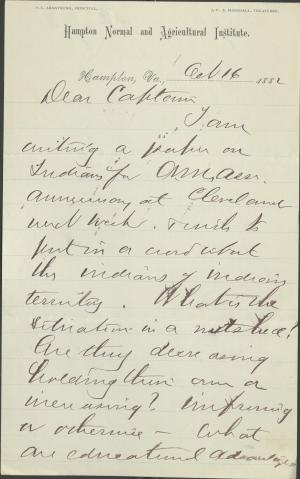 S. C. ARMSTRONG, PRINCIPAL. J. F. B. MARSHALL, TREASURER.
Hampton Normal and Agricultural Institute.
Hampton, Va., Oct 16 1882
Dear Captain
I am
writing a paper on
Indians for A.M. Assn.
anniversary at Cleveland
next week. I wish to
put in a word about
the indians of indian
territory. What is the
situation in a nutshell?
Are they decreasing
holding their own or
increasing? improving
or otherwise - What
are educational advantages